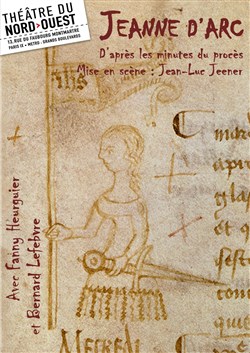 THÉÂTRE DU
NORD-OUEST
13, RUE DU FAUBOURG MONTMARTRE
PARIS IX • METRO : GRANDS BOULEVARDS
JEANNE D'ARC
D'après les minutes du procès
Mise en scène : Jean-Luc Jeener
Avec Fanny Heurguier
et Bernard Lefebvre